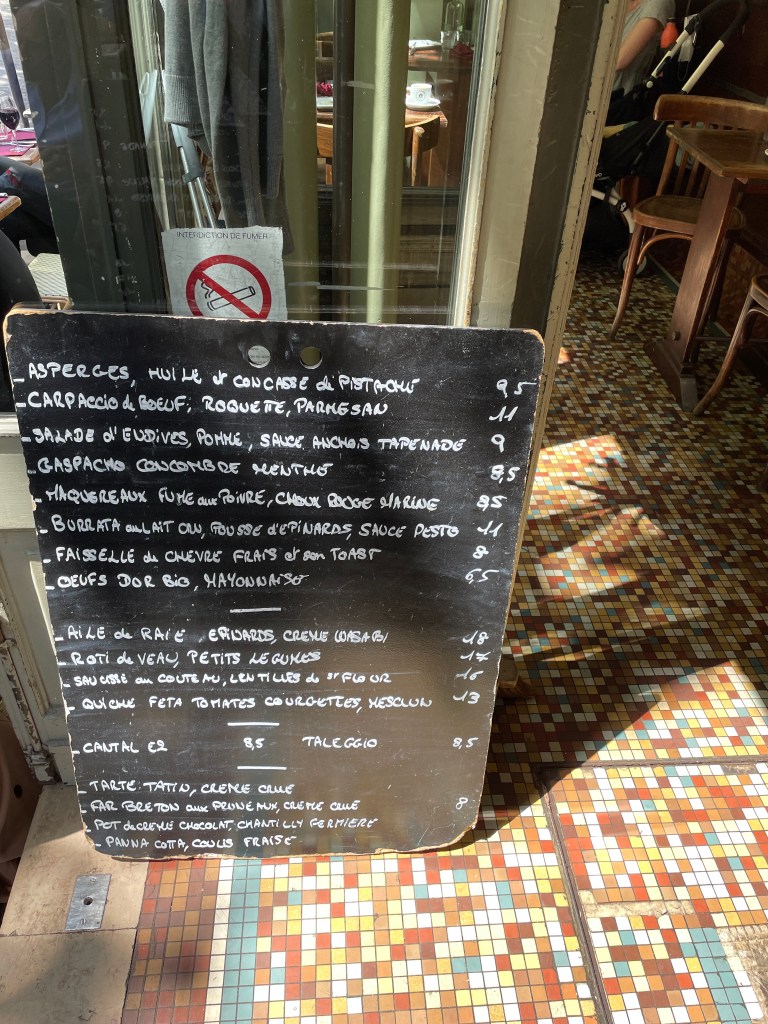 INTERDICTION DE FUMER
- ASPERGES, HUILE et CONCASSE de PISTACHE 9,5
- CARPACCIO de BOEUF, ROQUETTE, PARMESAN 11
- SALADE d'ENDIVES, POMME, SAUCE ANCHOIS TAPENADE 9
- GASPACHO CONCOMBRE MENTHE 8,5
- MAQUEREAUX FUME aux POIVRE, CHOUX ROUGE MARINE 8,5
- BURRATA au LAIT CRU, POUSSE d'EPINARDS, SAUCE PESTO 11
- FAISSELLE de CHEVRE FRAIS et son TOAST 8
- OEUFS DOR BIO, MAYONNAISE 6,5
- AILE de RAIE, EPINARDS, CREME WASABI 18
- ROTI de VEAU, PETITS LEGUMES 17
- SAUCISSE au COUTEAU, LENTILLES de ST FLOUR 16
- QUICHE FETA TOMATES COURGETTES, MESCLUN 13
- CANTAL E2 8,5 TALEGGIO 8,5
- TARTE TATIN, CREME CRUE
FAR BRETON aux PRUNEAUX, CREME CRUE 8
- POT de CREME CHOCOLAT, CHANTILLY FERMIERE
- PANNA COTTA, COULIS FRAISE